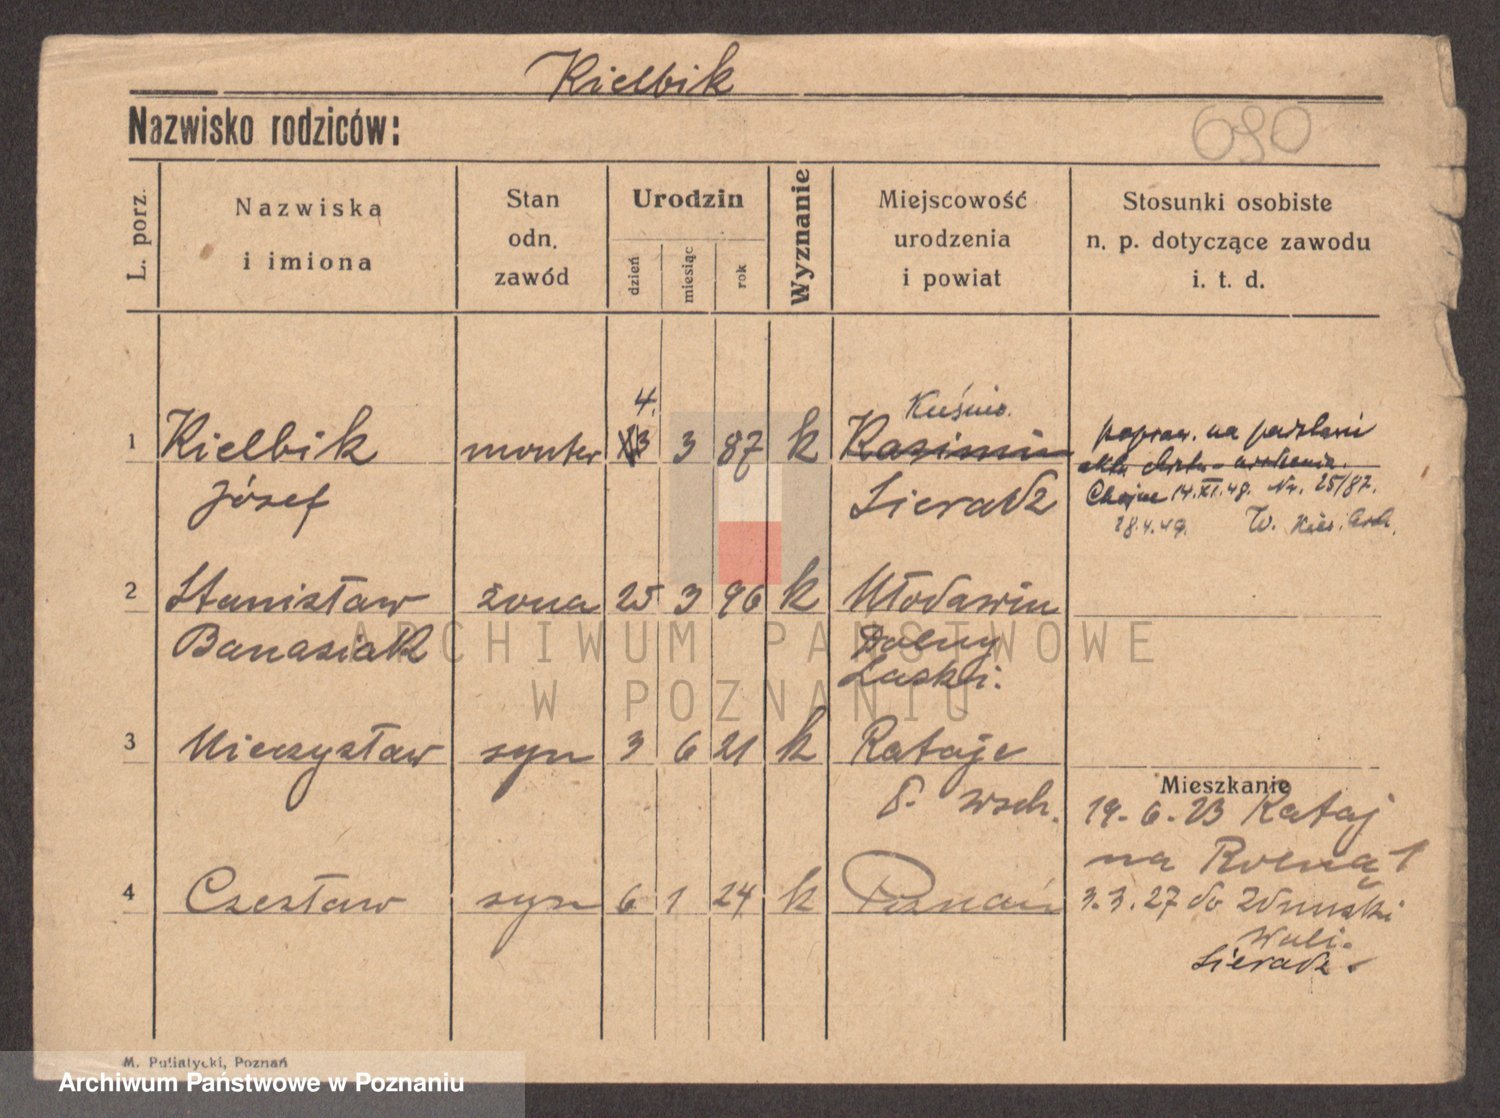 Kielbik
Nazwisko rodziców:
690
L. porz.
Nazwiska
i imiona
Stan
odn.
zawód
Urodzin
dzień
miesiąc
rok
Wyznanie
Miejscowość
urodzenia
i powiat
Stosunki osobiste
n. p. dotyczące zawodu
i. t. d.
4.
Kuśnie.
1 Kielbik monter 3 3 87 k Kazimin
popraw. na podstawie
Józef Sieradz
Chojne 14.XI.49. Nr. 25/87.
28.4.49.
2 Stanisław żona 25 3 96 k Włodawin
Banasiak Dolny
Łaski.
ARCHIWUM PAŃSTWOWE
W POZNANIU
3 Mieczysław syn 3 6 21 k Rataje
P. wsch.
Mieszkanie
19.6.23 Rataj
na Rolną 1
4 Czesław syn 6 1 24 k Poznań
3.3.27 do Zdunski
Woli.
Sieradz.
M. Putiatycki, Poznań
Archiwum Państwowe w Poznaniu